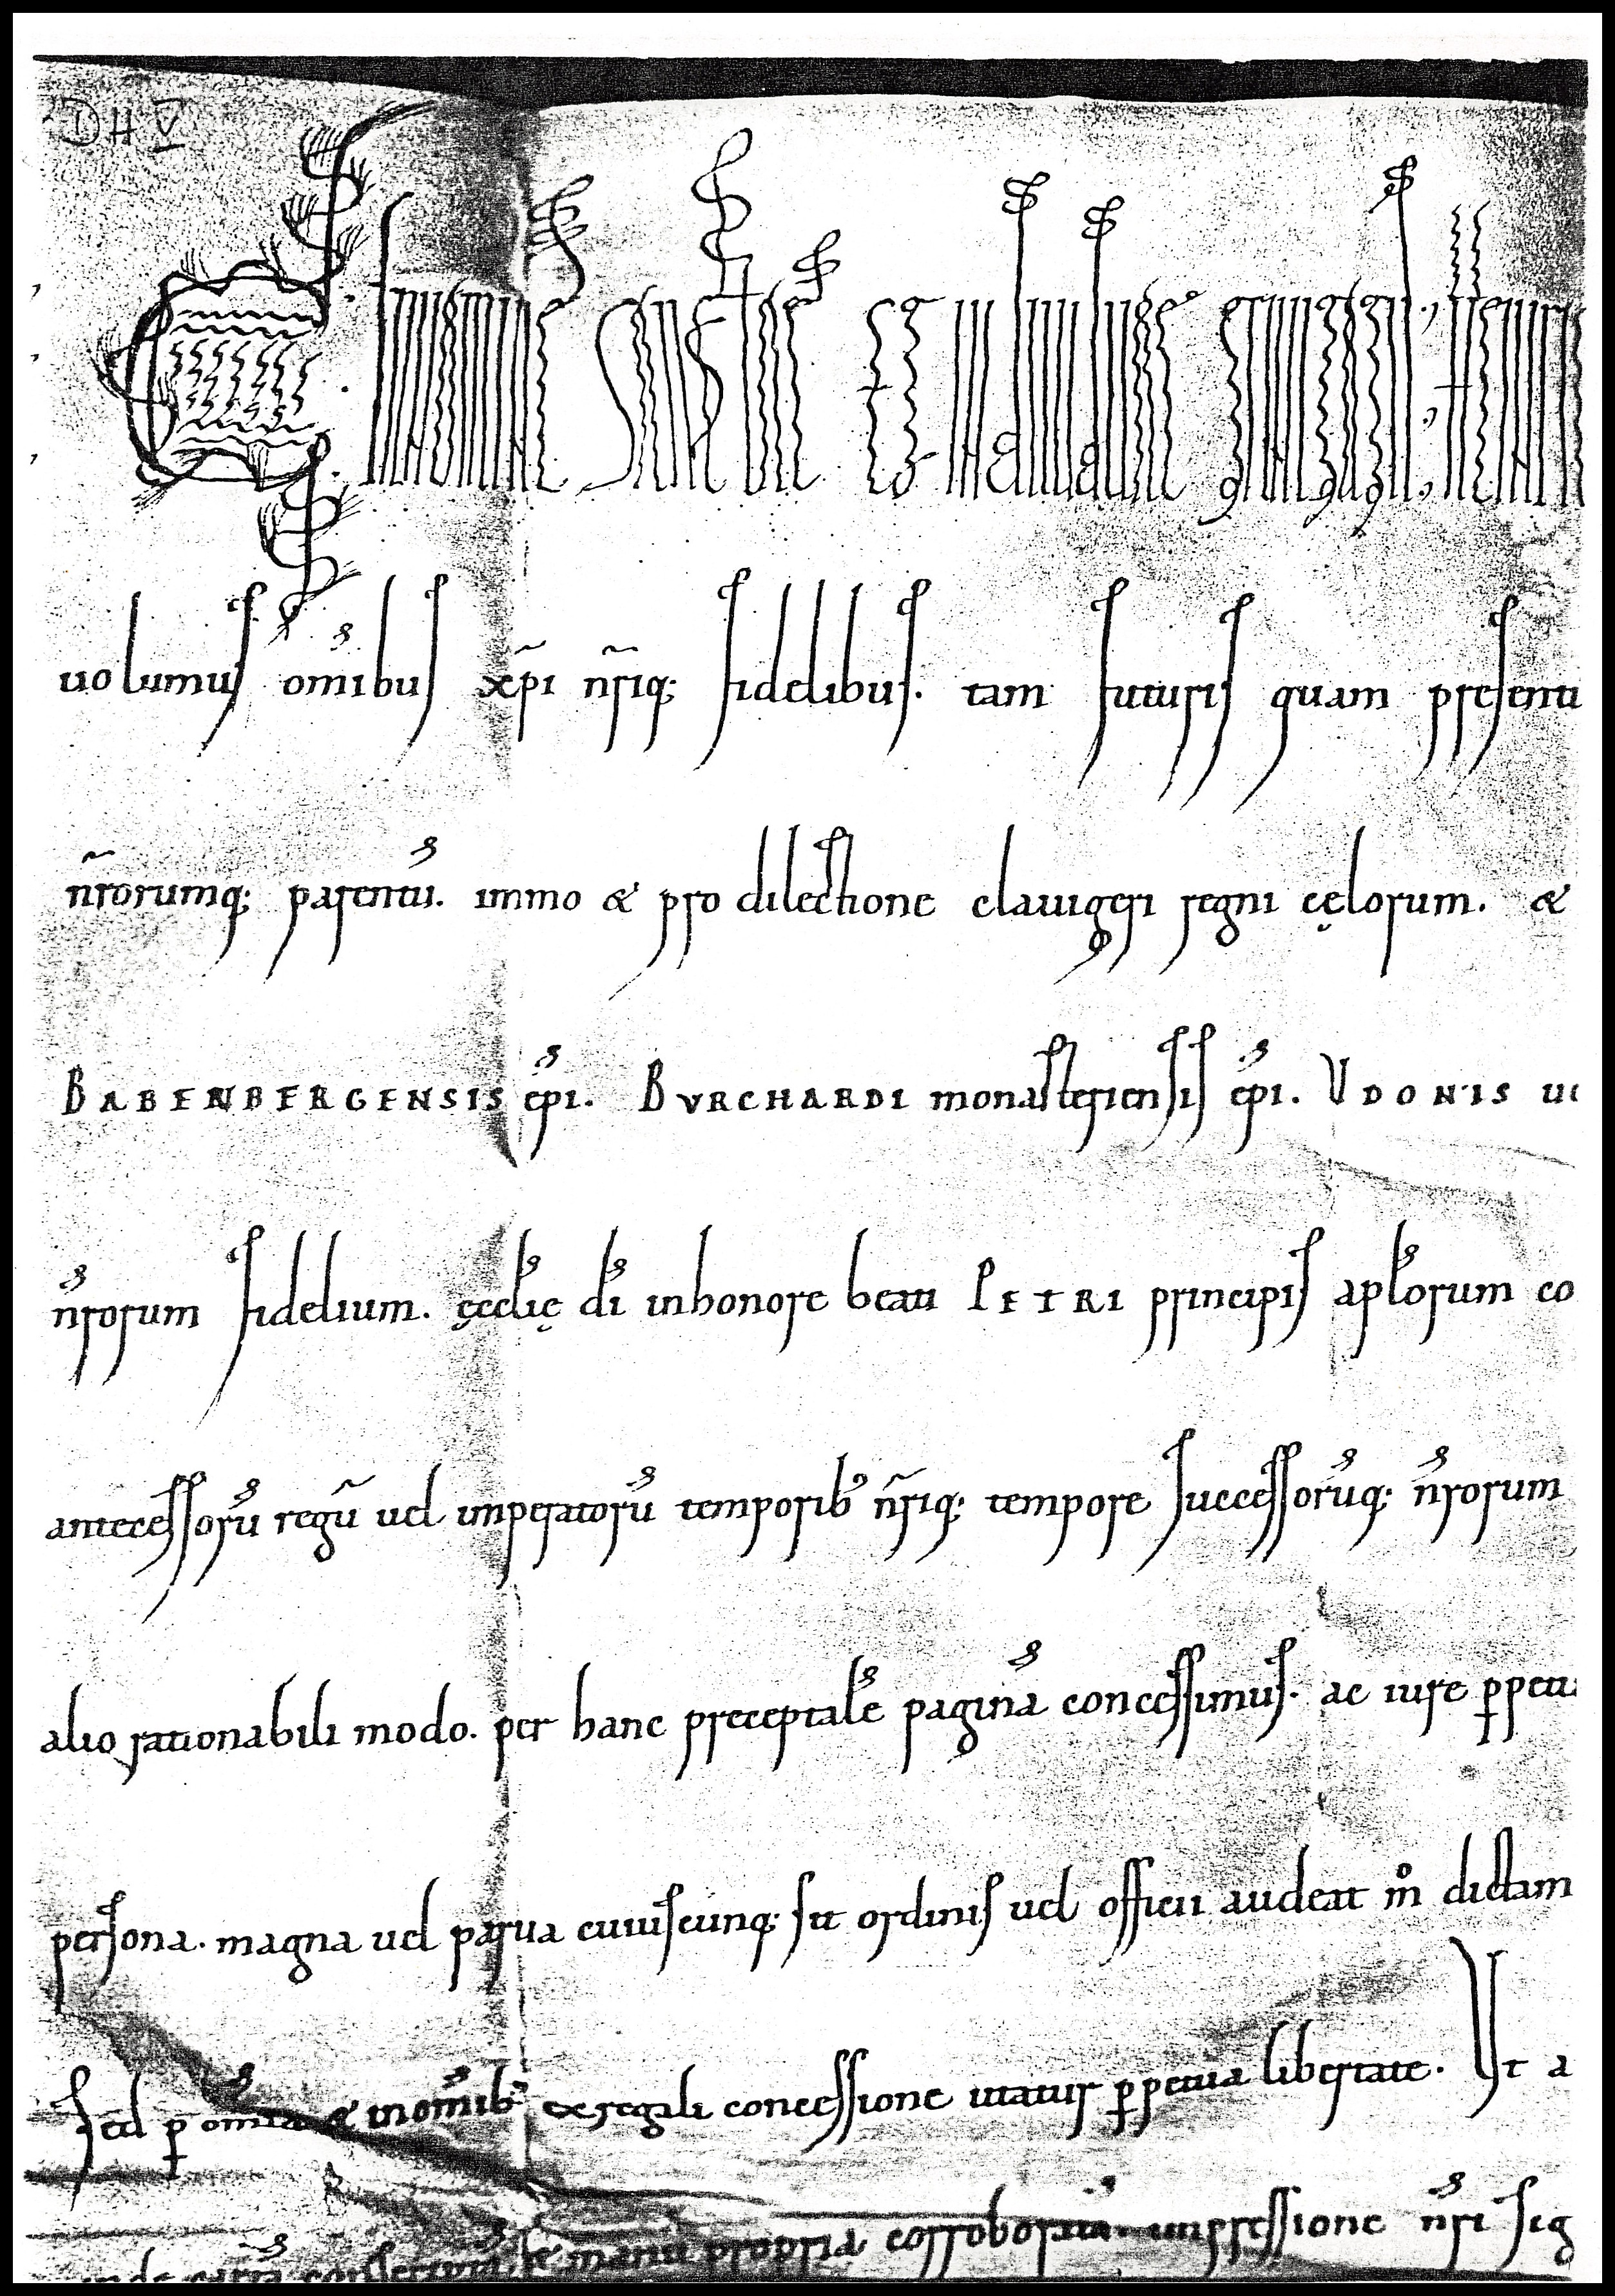 DHV
IN NOMINE SANCTAE ET INDIVIDUAE
uolumus om̄ibus xp̄i n̄riq; fidelibus. tam futuris quam presenti
n̄rorumq; parentū. immo & pro dilectione clauigeri regni cęlorum. &
BABENBERGENSIS ep̄i. BVRCHARDI monasteriensis ep̄i. VDONIS
n̄rorum fidelium. ęccl̄ię dī in honore beati PETRI principis apl̄orum co
antecessorū regū uel imperatorū temporib' n̄riq; tempore successorūq; n̄rorum
alio rationabili modo. per hanc preceptalē paginā concessimus. ac iure p̱petu
persona. magna uel parua cuiuscunq; sit ordinis uel officii audeat m̊ dictam
sed p̱ om̄ia & in om̄ib' ex regali concessione utatur p̱petua libertate. Vt a
inde cartā conscriptā & manu propria corroboratā. impressione n̄ri sig